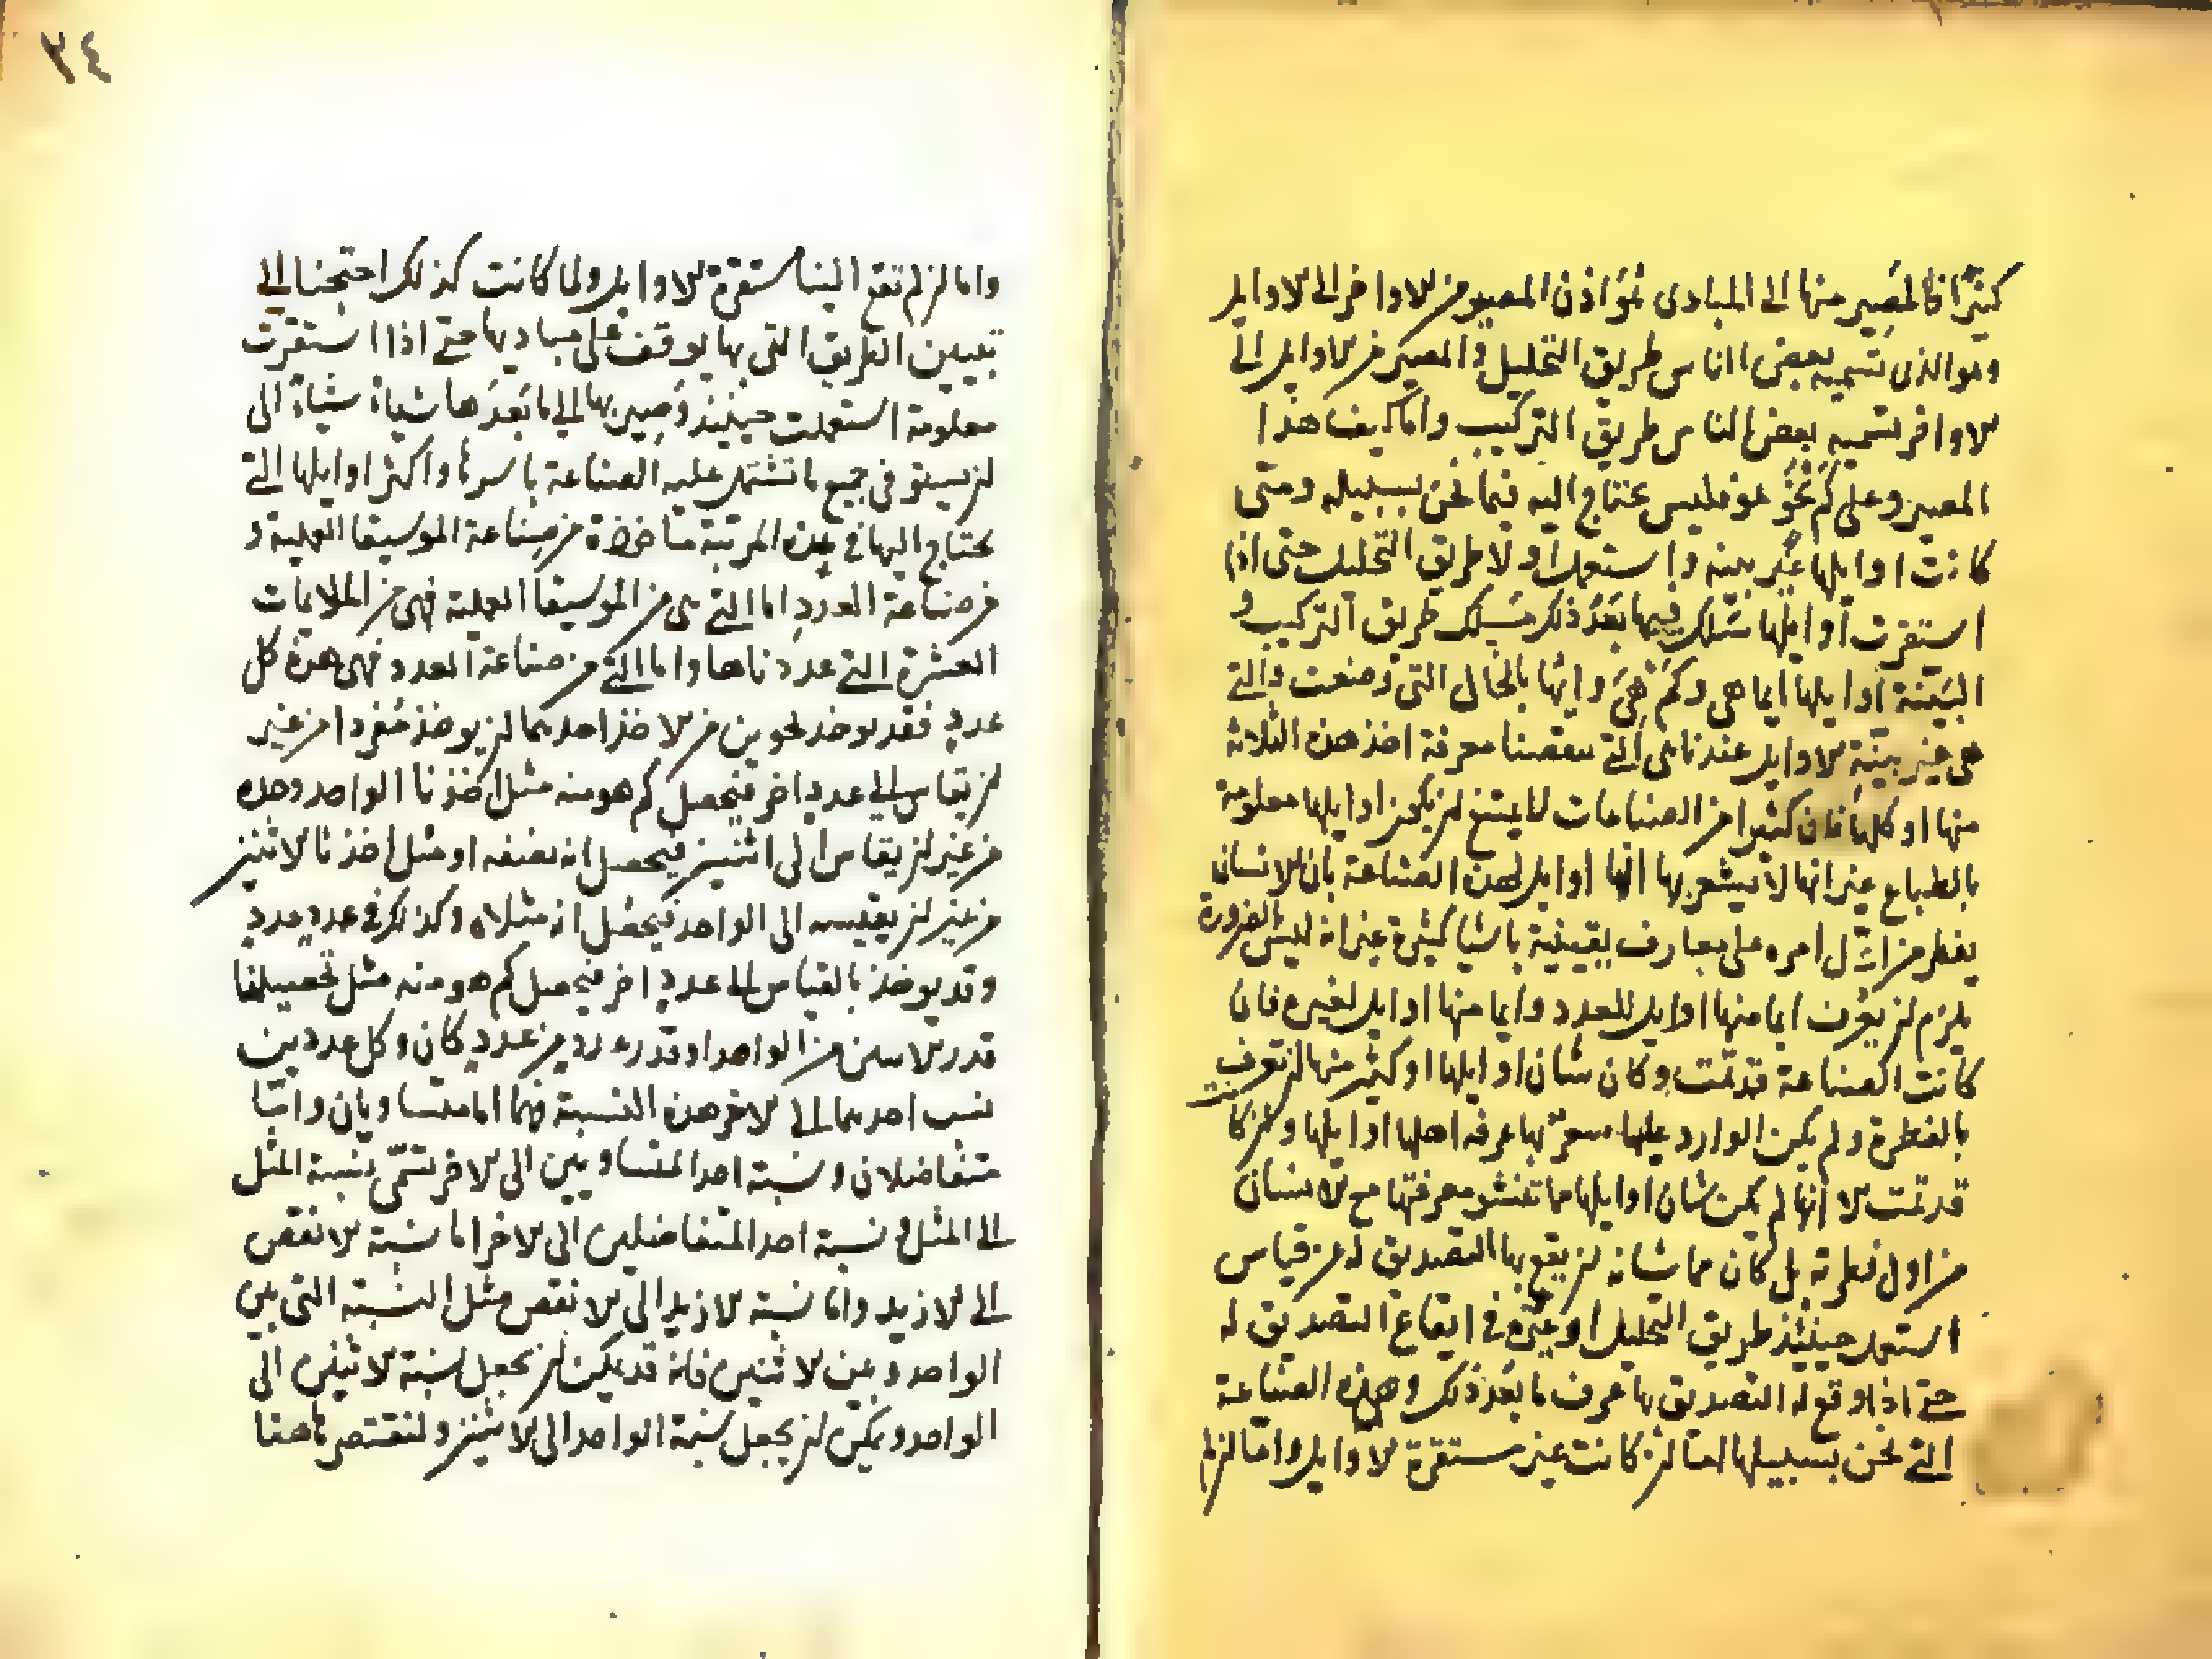 كثيرًا فالمصير منها الى المبادى هُوَ اذن المصير من الاواخر الى الاوايل
وهو الذى تسميه بعض الناس طريق التحليل والمصير من الاوايل الى
الاواخر تسميه بعض الناس طريق التركيب واما كيف هذا
المصير وعلى كم نَحْوٍ هو فليس نحتاج اليه فيما نحن بسبيله ومتى
كانت اوايلها غير بينه استعمل اولا طريق التحليل حتى اذا
استقرت اوايلها سُلك فيها بَعْد ذلك مسلك طريق التركيب و
البيّنة اوايلها ايما هى وكم هِىَ وايها بالحال التى وصفت والتى
هى غير بيّنةِ الاوايل عندنا هى التى معرفة اخذ هذه الثلاثة
منها او كلها فان كثيرا من الصناعات لا يمتنع ان يكون اوايلها معلومة
بالطباع غير انها لا يشعر بها انها اوايل لهذه الصناعة بان الانسان
يفطر من اوّل امره على معارف يقينية باشيا كثيرة غير انه ليس بالضرورة
يلزم ان يعرف ايما منها اوايل للعدد وايما منها اوايل لغيره فان
كانت الصناعة قد تمت وكان شان اوايلها او كثير منها ان تعرف
بالفطرة ولم يكن الوارد عليها بها عرفه اهلها اوايلها وان كانت
قد تمت الا انها لم يكن شان اوايلها مما تنشو معرفتها مع الانسان
من اول فطرته بل كان مما شانه ان يقع بها التصديق له عن قياس
استعمل حينئذ طريق التحليل او غيره فى ايقاع التصديق له
حتى اذا وقع له التصديق بها عرف ما بَعْد ذلك وهذه الصناعة
التى نحن بسبيلها اما ان كانت غير مستقرة الاوايل واما ان لم
٣٤
واما ان لم تقع الينا مستقرة الاوايل ولما كانت كذلك احتجنا الى
تبيين الطريق التى بها يوقف على مباديها حتى اذا استقرت
معلومة استعملت حينئذ وَصِير بها الى ما بَعْدَها شياءً شياءً الى
ان يستو فى جميع ما تشتمل عليه الصناعة باسرها واكثر اوايلها التى
نحتاج اليها فى هذه المرتبة ماخوذة من صناعة الموسيقا العملية و
من صناعة العددِ اما التى هى من الموسيقا العملية فهى من الملايمات
العشرة التى عددناها واما التى من صناعة العدد فهى هذه كل
عددٍ فقد يوخذ نحوين من الاخذ احدهما ان يوخذ مفردا من غير
ان يقاس الى عددٍ اخر فيحصل كم هو منه مثل اخذنا الواحد وحده
من غير ان يقاس الى اثنين فيحصل انه نصفه او مثل اخذنا الاثنين
من غير ان يقيسه الى الواحد فيحصل انه مثلاه وكذلك فى عددٍ عددٍ
وقد يوخذ بالقياس الى عددٍ اخر فيحصل كم هو منه مثل تحصيلنا
قدر الاثنين من الواحد او قدر عدد من عددٍ كان وكل عددين
نسب احدهما الى الاخر هذه النسبة فهما اما متساويان واما
متفاضلان ونسبة احد المتساويين الى الاخر تسمّى نسبة المثل
الى المثل ونسبة احد المتفاضلين الى الاخر اما نسبة الانقص
الى الازيد واما نسبة الازيد الى الانقص مثل النسبة التى بين
الواحد وبين الاثنين فانه قد يمكن ان نجعل نسبة الاثنين الى
الواحد ويمكن ان نجعل نسبة الواحد الى الاثنين ولنقتصر هاهنا